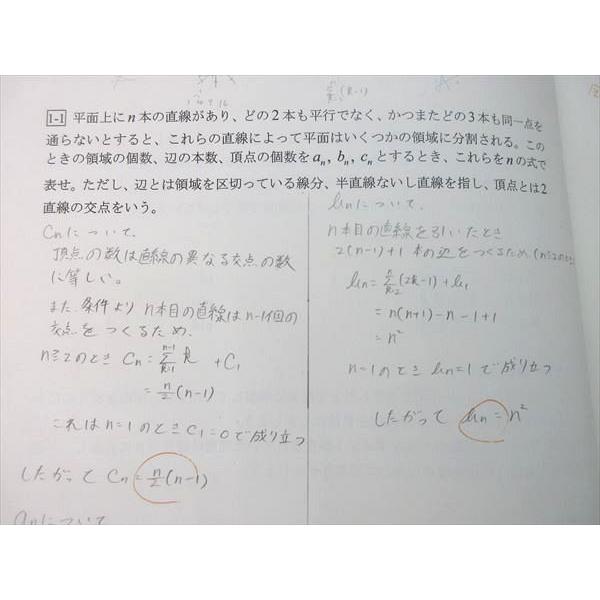 (k-1)
1-1 平面上にn本の直線があり、どの2本も平行でなく、かつまたどの3本も同一点を
通らないとすると、これらの直線によって平面はいくつかの領域に分割される。この
ときの領域の個数、辺の本数、頂点の個数をaₙ, bₙ, cₙとするとき、これらをnの式で
表せ。ただし、辺とは領域を区切っている線分、半直線ないし直線を指し、頂点とは2
直線の交点をいう。
Cnについて、
頂点の数は直線の異なる交点の数
に等しい。
また、条件より n本目の直線はn-1個の
交点をつくるため、
n≧2のとき Cn = Σ[k=1, n-1] k + C1
= n/2 (n-1)
これはn=1のときC1=0で成り立つ
したがって Cn = n/2 (n-1)
anについて
bnについて、
n本目の直線を引いたとき
2(n-1)+1 本の辺をつくるため、(n≧2のとき)
bn = Σ[k=2, n] (2k-1) + b1
= n(n+1)-n-1+1
= n²
n=1のとき b1=1で成り立つ
したがって bn = n²